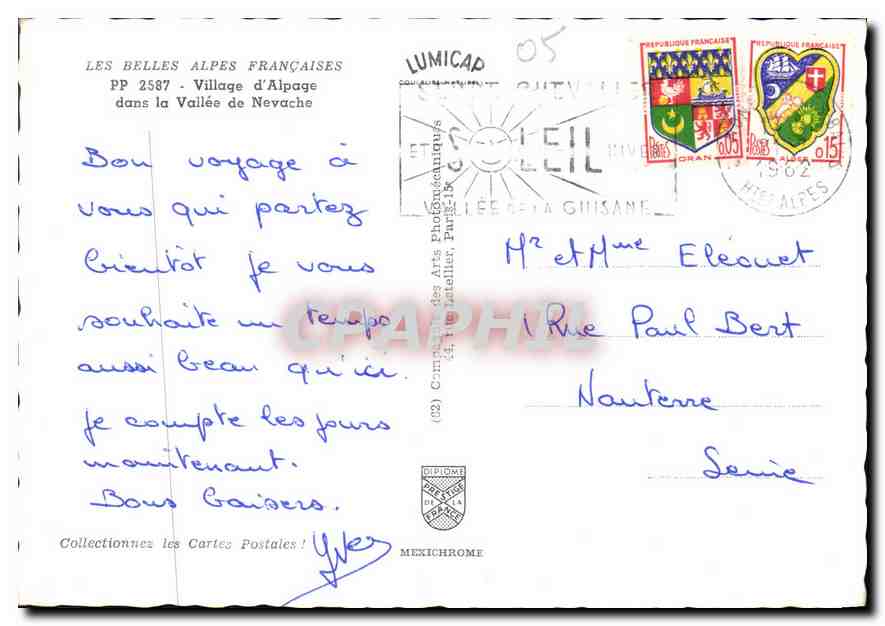 LES BELLES ALPES FRANÇAISES
PP 2587 - Village d'Alpage
dans la Vallée de Nevache
Bon voyage à
vous qui partez
bientôt je vous
souhaite un temps
aussi beau qu'ici.
je compte les jours
maintenant.
Bons baisers.
Yves
Collectionnez les Cartes Postales !
LUMICAP
05
SOLEIL
VALLÉE DE LA GUISANE
REPUBLIQUE FRANÇAISE
POSTES
0,05
ORAN
REPUBLIQUE FRANÇAISE
POSTES
0,15
ALGER
1962
HTES ALPES
(62) Compagnie des Arts Photomécaniques
44, rue Letellier, Paris-15e
CPAPHIL
Mr et Mme Eléouet
1 Rue Paul Bert
Nanterre
Seine
DIPLOME
PRESTIGE
DE LA
FRANCE
MEXICHROME